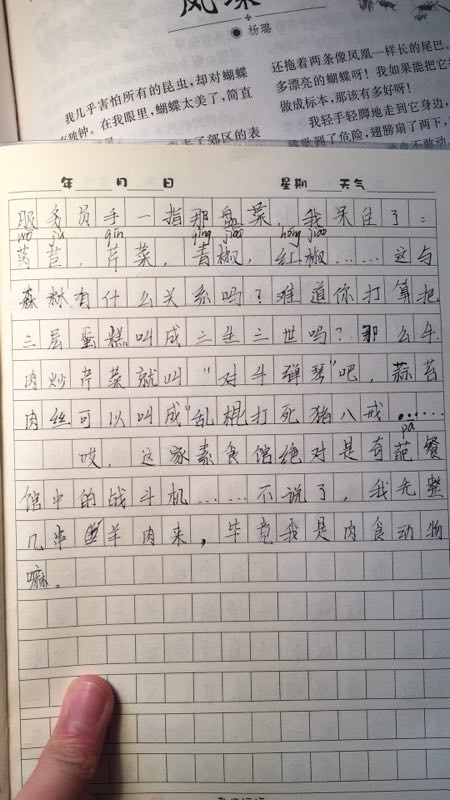 凤蝶
◉ 杨璐
我几乎害怕所有的昆虫，却对蝴蝶
独钟。在我眼里，蝴蝶太美了，简直
了郊区的表
还拖着两条像凤凰一样长的尾巴。
多漂亮的蝴蝶呀！我如果能把它
做成标本，那该有多好呀！
我轻手轻脚地走到它身边，
感觉到了危险，翅膀扇了两下，
年 月 日 星期 天气
服务员手一指那盘菜，我呆住了：
wō jù qín qīng jiāo hóng jiāo
莴苣，芹菜，青椒，红椒……这与
森林有什么关系吗？难道你打算把
三层蛋糕叫成三生三世吗？那么牛
肉炒芹菜就叫“对牛弹琴”吧，蒜苔
肉丝可以叫成“乱棍打死猪八戒……
pā
哎，这家素食馆绝对是奇葩餐
馆中的战斗机……不说了，我先整
几串羊肉来，毕竟我是肉食动物
嘛。